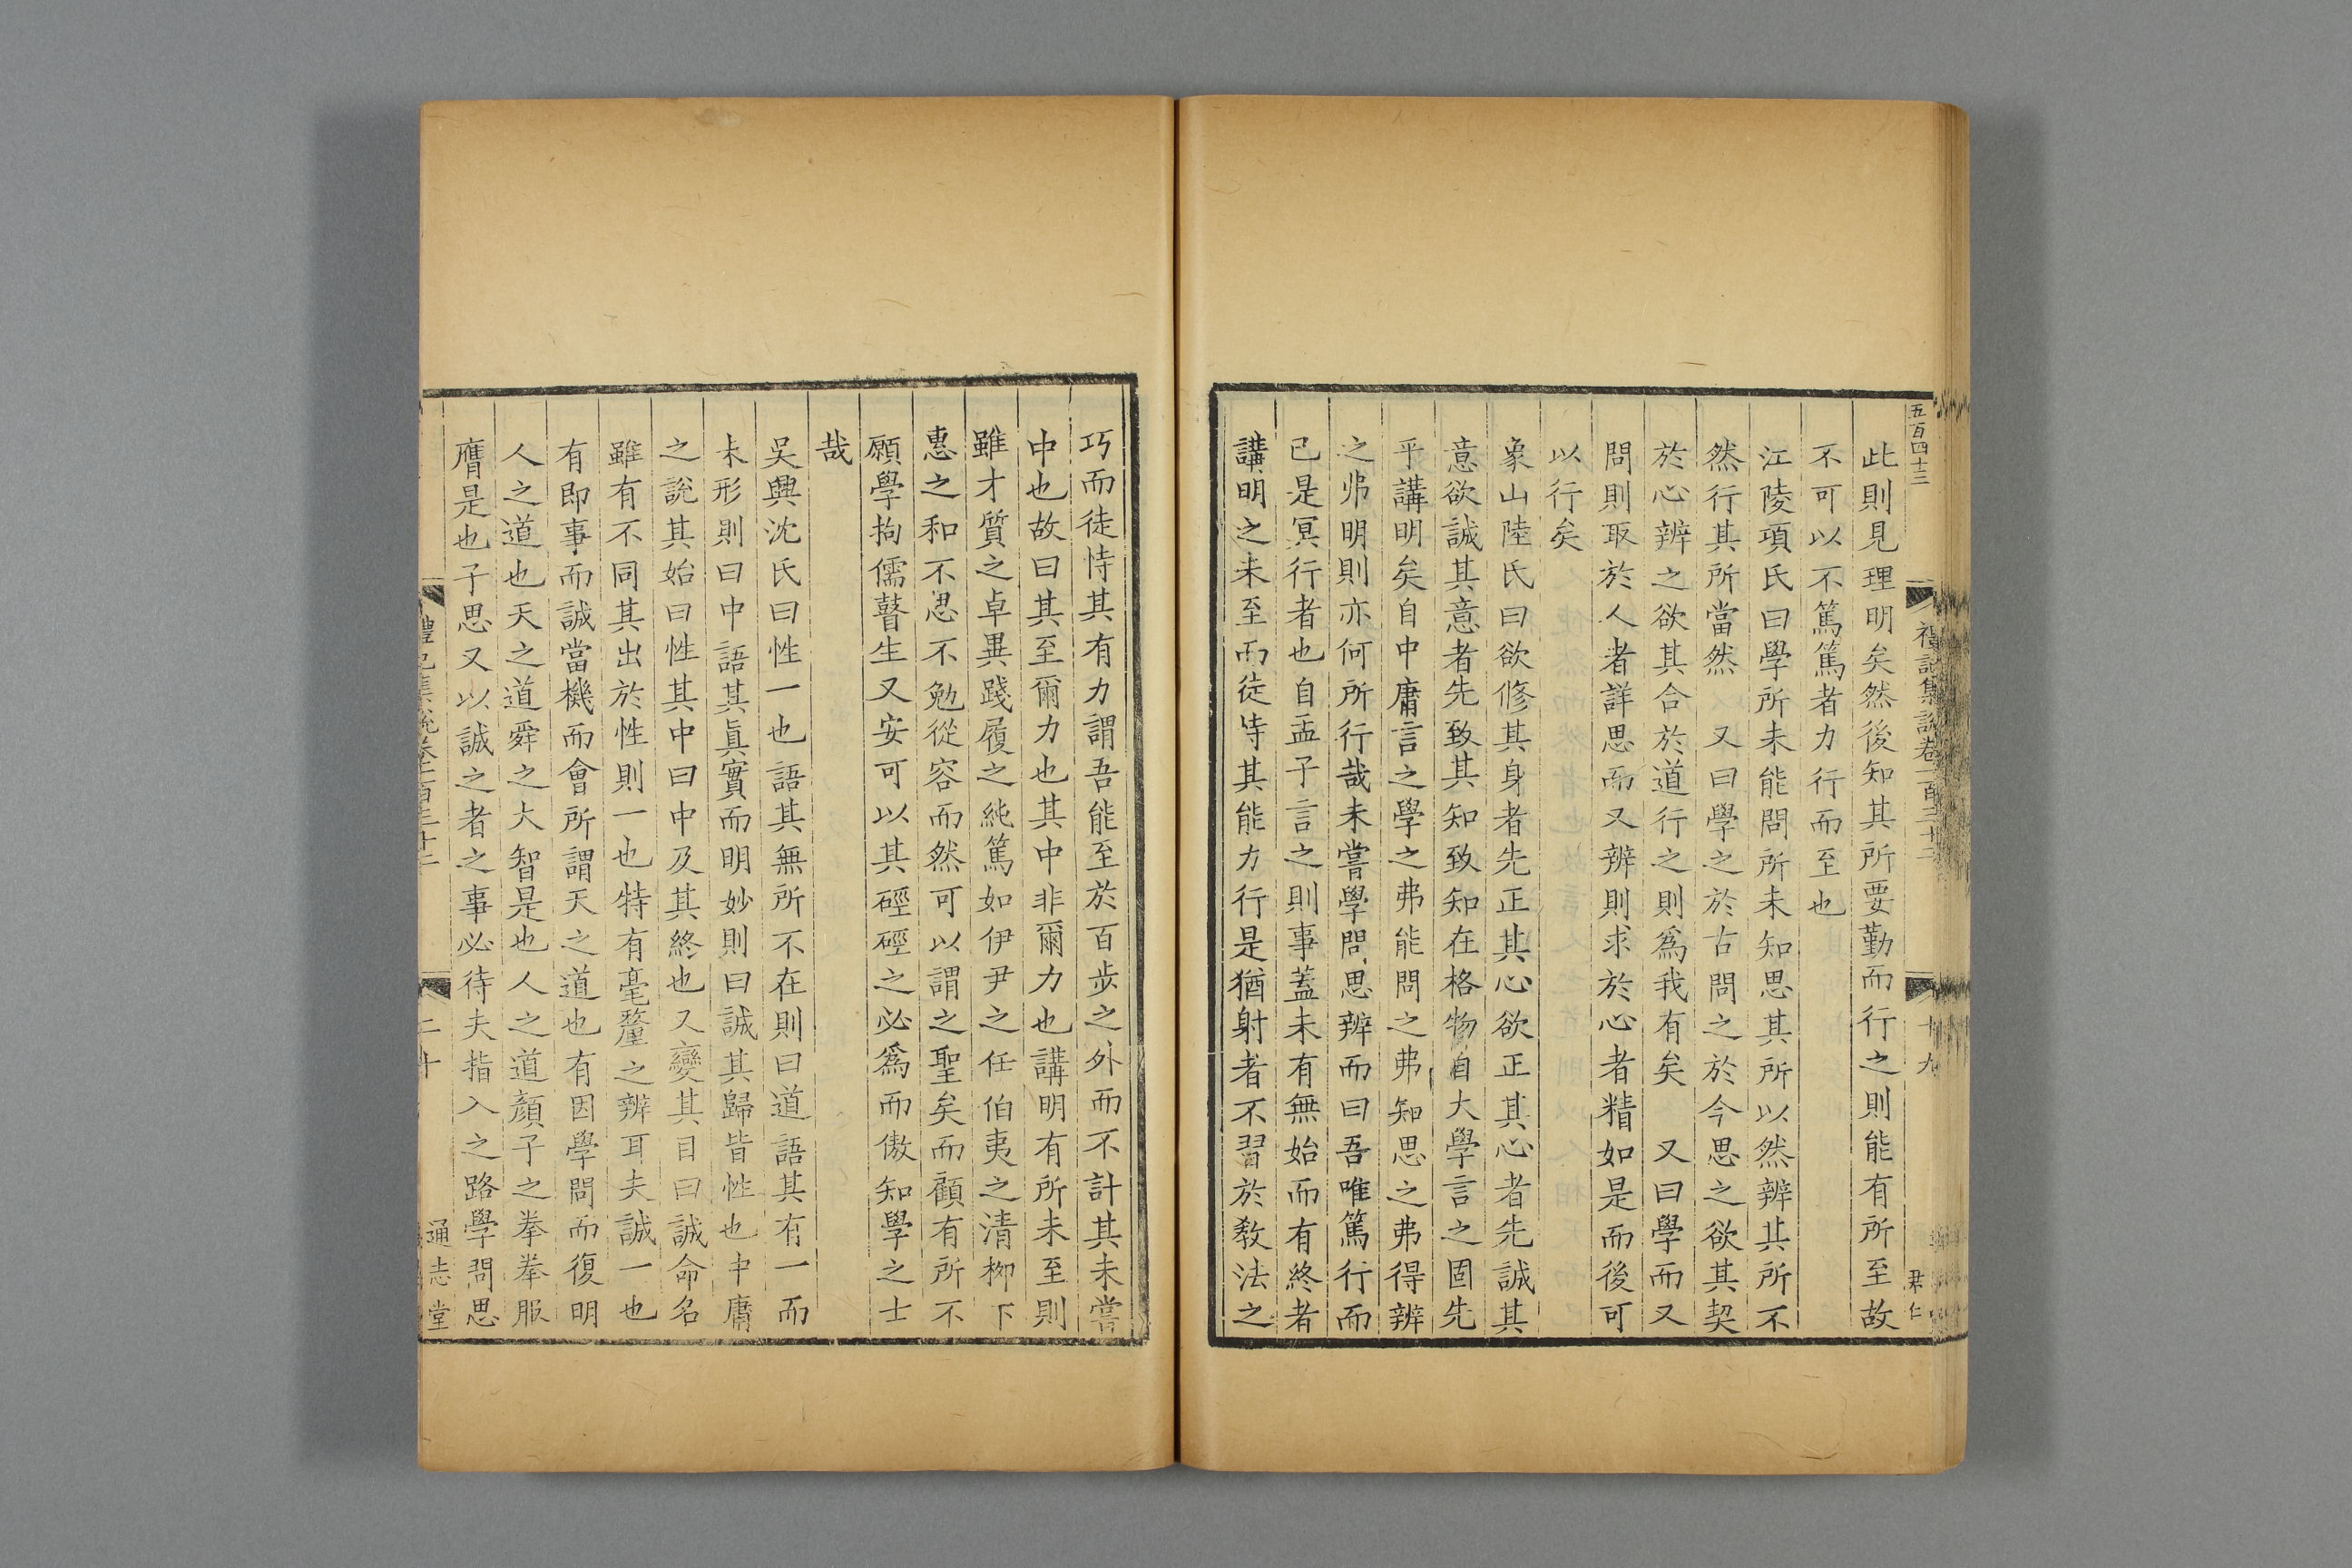 五百四十三
禮記集說卷一百三十二
十九
君仁
此則見理明矣然後知其所要勤而行之則能有所至故
不可以不篤篤者力行而至也
江陵項氏曰學所未能問所未知思其所以然辨其所不
然行其所當然 又曰學之於古問之於今思之欲其契
於心辨之欲其合於道行之則爲我有矣 又曰學而又
問則取於人者詳思而又辨則求於心者精如是而後可
以行矣
象山陸氏曰欲修其身者先正其心欲正其心者先誠其
意欲誠其意者先致其知致知在格物自大學言之固先
乎講明矣自中庸言之學之弗能問之弗知思之弗得辨
之弗明則亦何所行哉未嘗學問思辨而曰吾唯篤行而
已是冥行者也自孟子言之則事蓋未有無始而有終者
講明之未至而徒恃其能力行是猶射者不習於敎法之
巧而徒恃其有力謂吾能至於百步之外而不計其未嘗
中也故曰其至爾力也其中非爾力也講明有所未至則
雖才質之卓異踐履之純篤如伊尹之任伯夷之清柳下
惠之和不思不勉從容而然可以謂之聖矣而顧有所不
願學拘儒瞽生又安可以其硜硜之必爲而傲知學之士
哉
吳興沈氏曰性一也語其無所不在則曰道語其有一而
未形則曰中語其眞實而明妙則曰誠其歸皆性也中庸
之說其始曰性其中曰中及其終也又變其目曰誠命名
雖有不同其出於性則一也特有毫釐之辨耳夫誠一也
有即事而誠當機而會所謂天之道也有因學問而復明
人之道也天之道舜之大智是也人之道顏子之拳拳服
膺是也子思又以誠之者之事必待夫指入之路學問思
禮記集說卷一百三十二
二十
通志堂